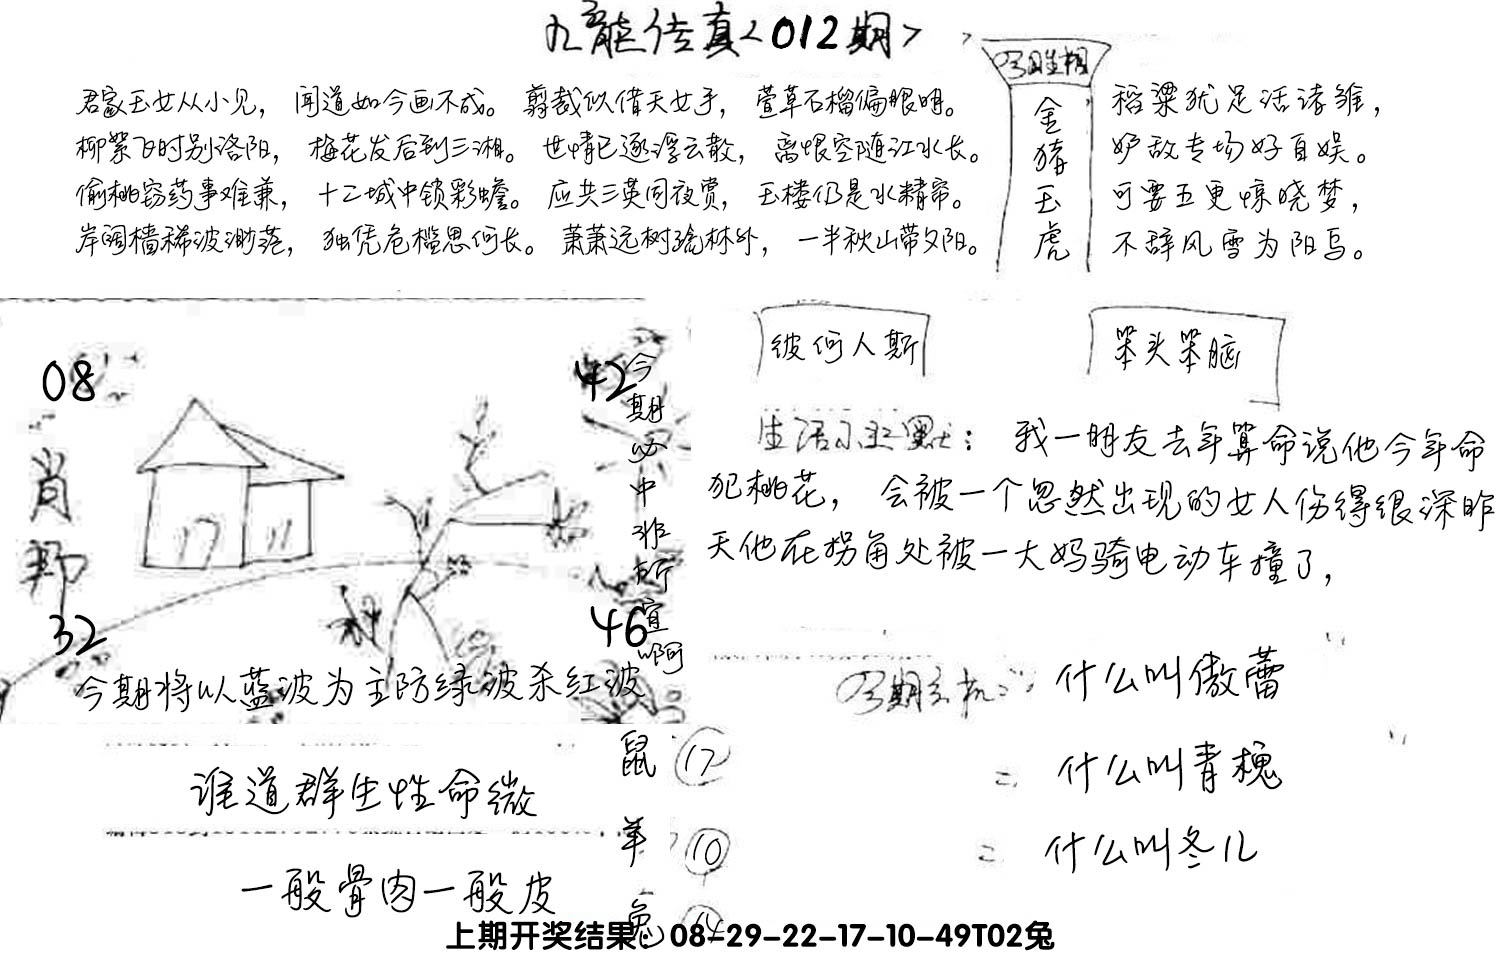 九龙传真<012期>
君家玉女从小见，闻道如今画不成。剪裁似借天女手，萱草石榴偏眼明。
柳絮飞时别洛阳，梅花发后到三湘。世情已逐浮云散，离恨空随江水长。
偷桃窃药事难兼，十二城中锁彩蟾。应共三英同夜赏，玉楼仍是水精帘。
岸阔樯稀波渺茫，独凭危槛思何长。萧萧远树疏林外，一半秋山带夕阳。
金猪玉虎
稻粱犹足活诸雏，
妒敌专场好自娱。
可要五更惊晓梦，
不辞风雪为阳乌。
08
42
肖
32
46
今期必中非所宜啊
今期将以蓝波为主防绿波杀红波
彼何人斯
笨头笨脑
生活小幽默：我一朋友去年算命说他今年命
犯桃花，会被一个忽然出现的女人伤得很深昨
天他在拐角处被一大妈骑电动车撞了，
今期玄机：什么叫傲蕾
二 什么叫青槐
二 什么叫冬儿
谁道群生性命微
一般骨肉一般皮
鼠 17
羊 10
兔
上期开奖结果：08-29-22-17-10-49T02兔